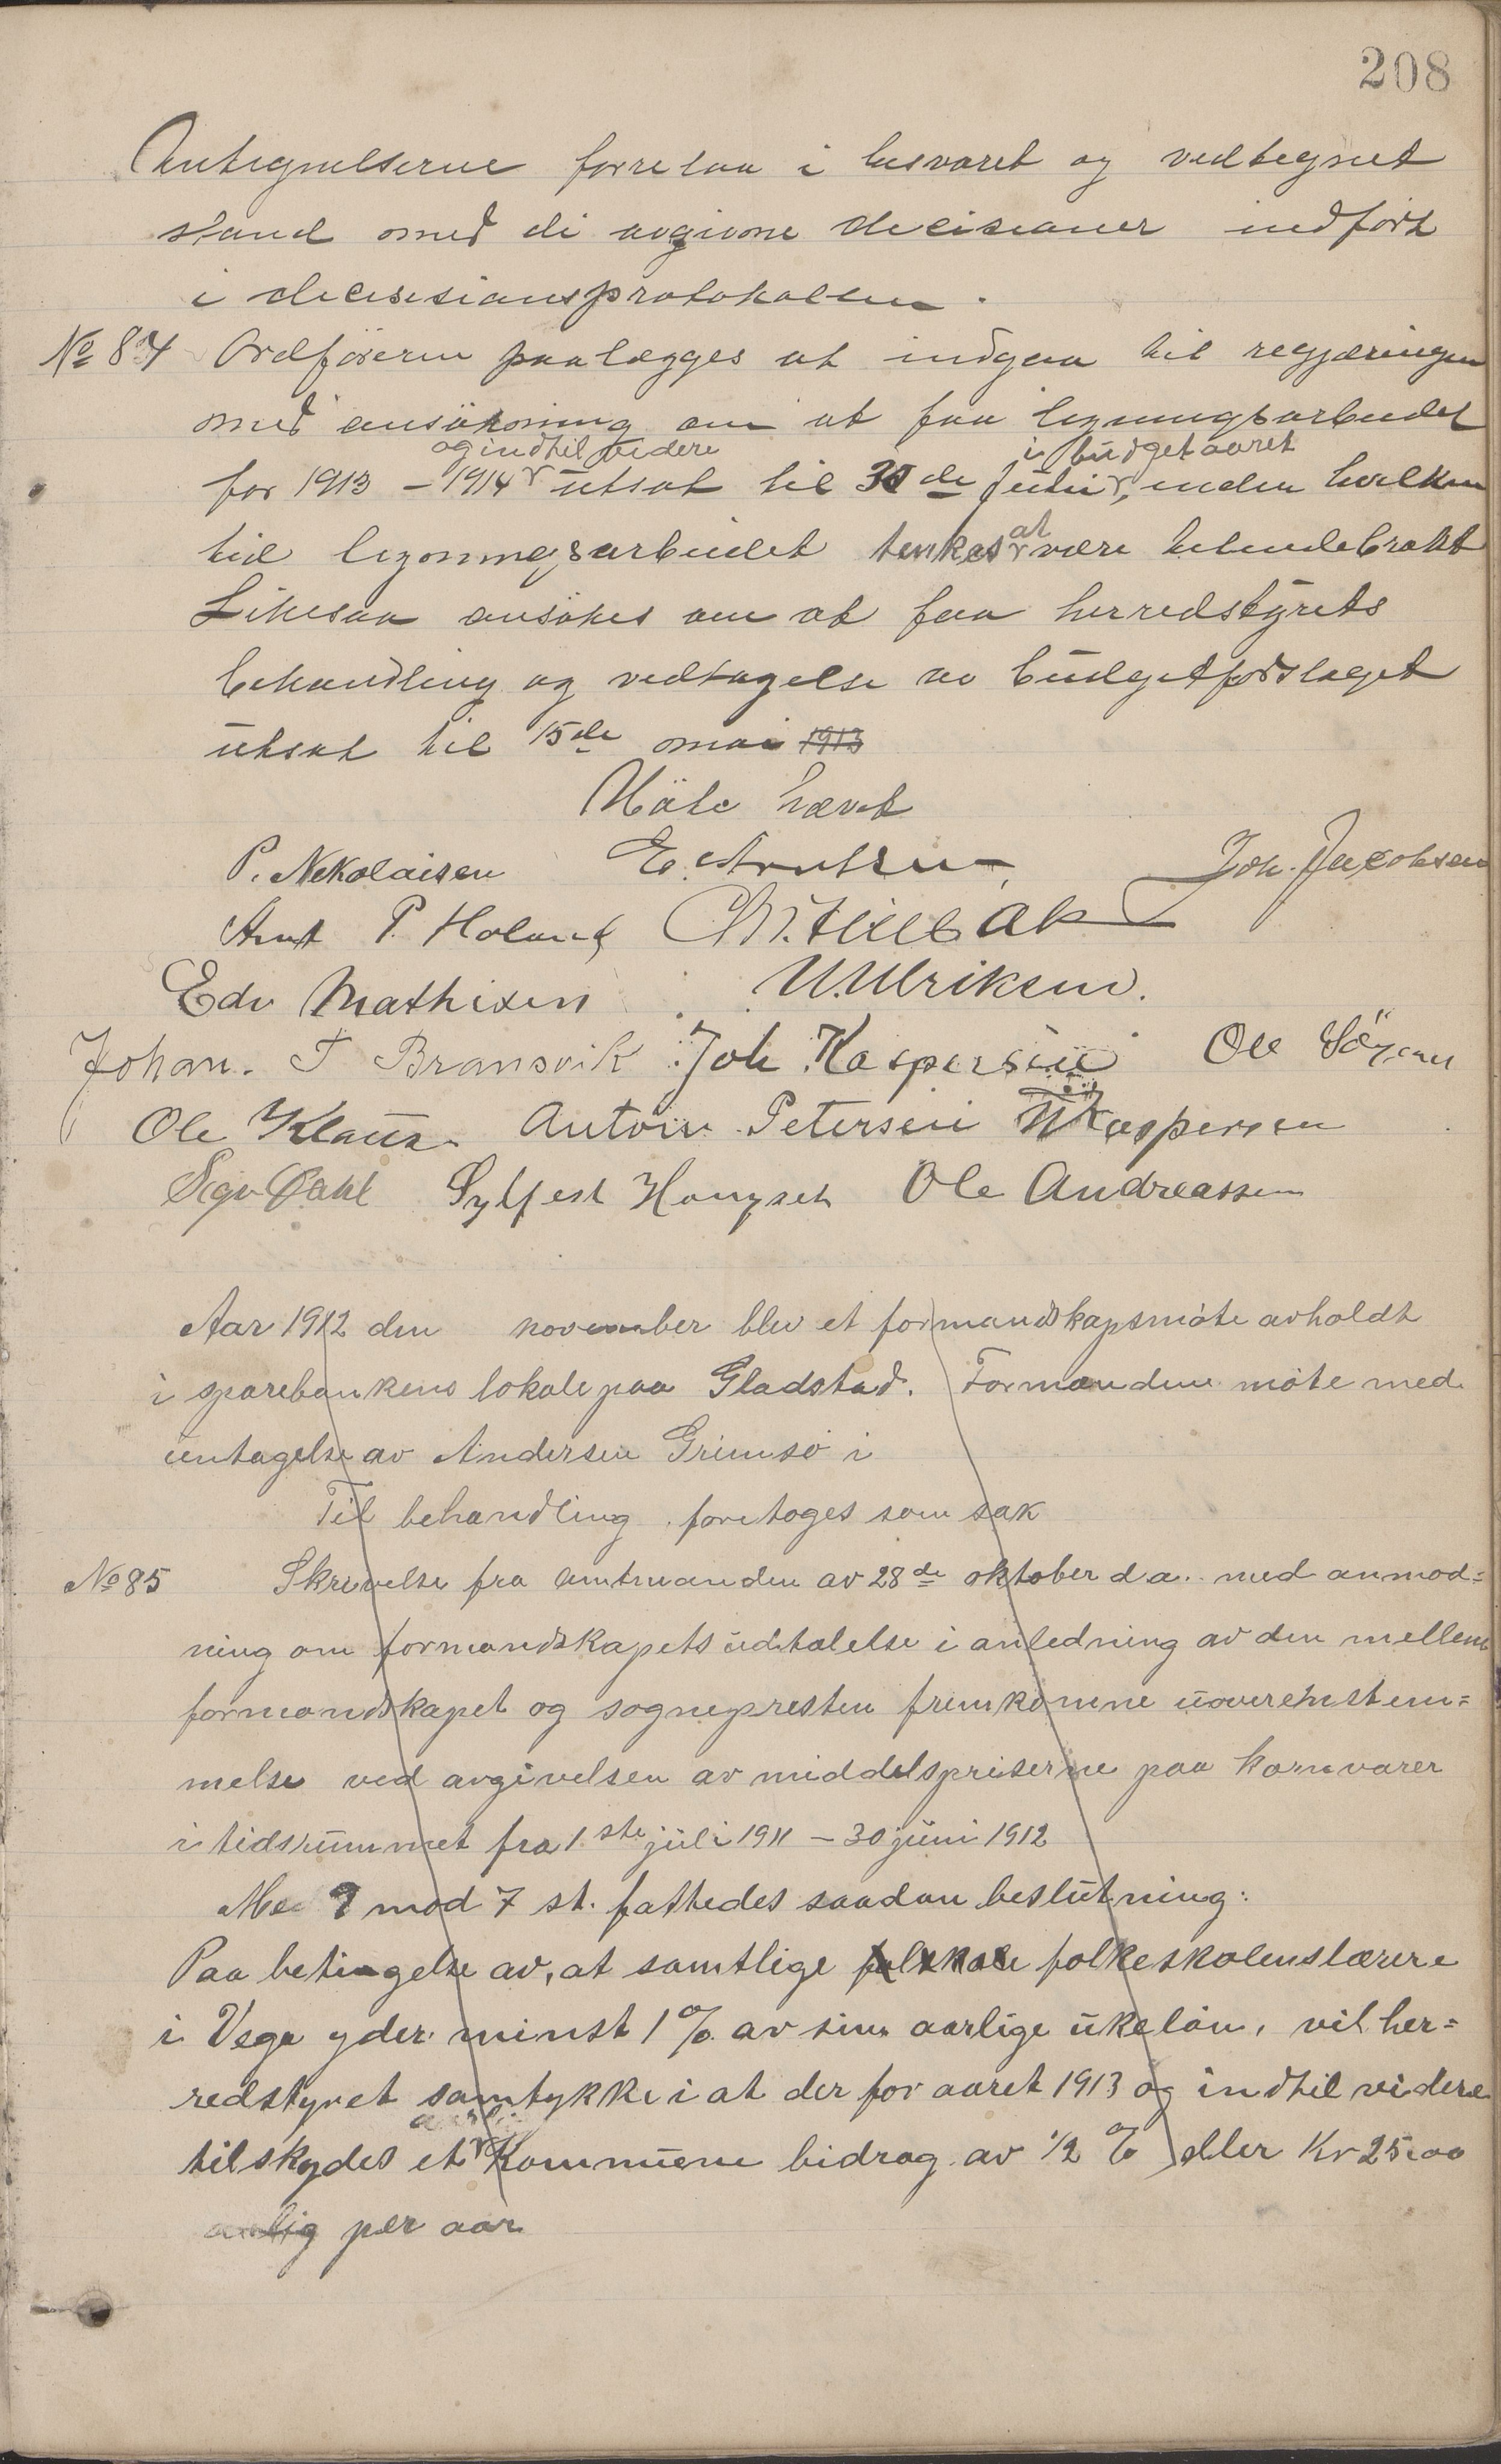 208
Antegnelserne forrelaa i besvaret og vedtegnet
stand med de avgivne decisioner indfört
i decisionsprotokollen.
No 84 Ordföreren paalægges at indgaa til regjæringen
med ansökning om at faa ligningsarbeidet
og indtil videre i büdgetaaret
for 1913 – 1914 ütsat til 30de juni, inden hvilken
at
tid ligningsarbeidet tenkes være tilendebrakt
Likesaa ansökes om at faa herredstyrets
behandling og vedtagelse av büdgetforslaget
ütsat til 15de mai 1913
Möte hævet
P. Nikolaisen E. Arntsen Joh. Jacobsen
Arnt P. Holand Chr. Hillbak
Edv Mathisen U. Ulriksen.
Johan. T Bransvik Joh Kaspersen Ole
Ole Klaus. Anton Petersen Kaspersen
Sigv Dahl Sylfest Ole Andreassen
Aar 1912 den november blev et formandskapsmöte avholdt
i sparebankens lokale paa Gladstad. Formændene möte med
üntagelse av Andersen Grimsö i
Til behandling foretoges som sak
No 85 Skrivelse fra amtmanden av 28de oktober d.a. med anmod=
ning om formandskapets üdtalelse i anledning av den mellem
formandskapet og sognepresten fremkomne üoverenstem=
melse ved avgivelsen av middelspriserne paa kornvarer
i tidsrümmet fra 1ste jüli 1911 – 30 jüni 1912
Med 9 mod 7 st. fattedes saadan beslütning:
Paa betingelse av, at samtlige folkeskolenslærere
i Vega yder minst 1 % av sin aarlige ükelön, vil her=
redstyret samtykke i at der for aaret 1913 og indtil videre
aarlig
tilskydes et Kommüne bidrag av 1/2 % eller Kr 25.00
aarlig per aar